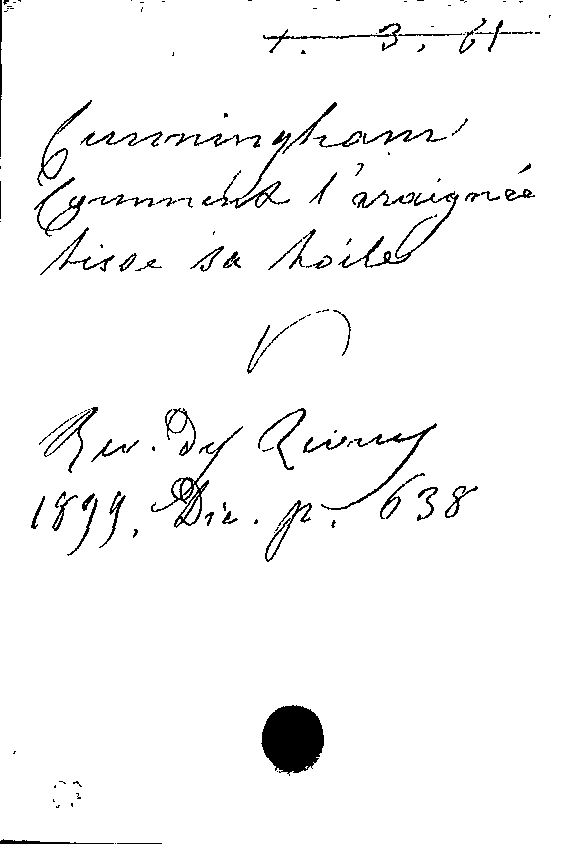 +. 3. 61
Cunningham
Comment l'araignée
tisse sa toile
Rev. des Revues
1899. Déc. p. 638